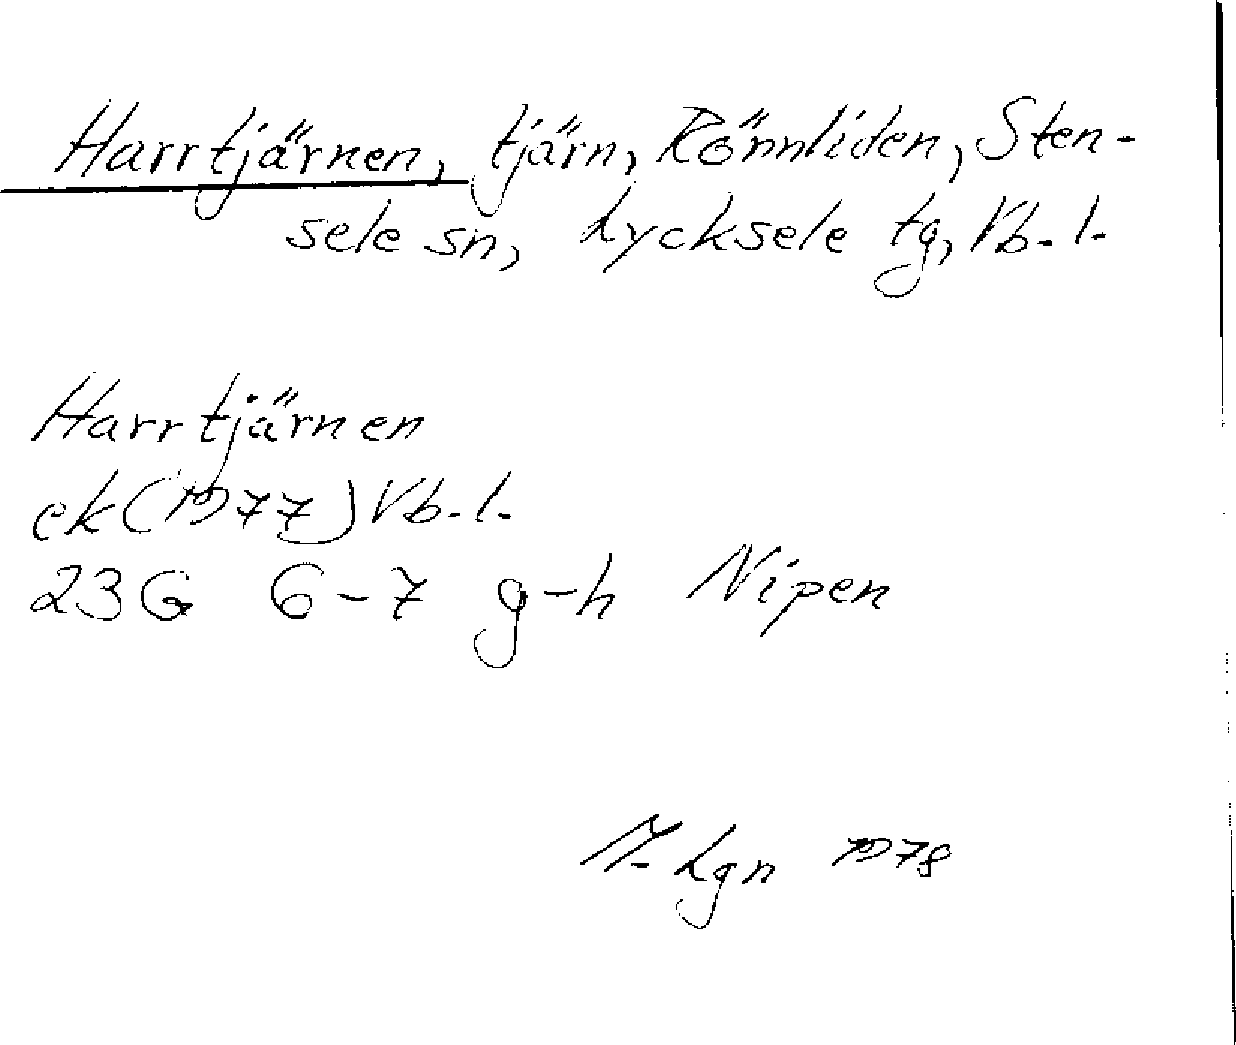 Harrtjärnen, tjärn, Rönnliden, Sten-
sele sn, Lycksele tg, Vb. l.
Harrtjärnen
ek (1977) Vb. l.
23 G 6-7 g-h Nipen
Lgn 1978